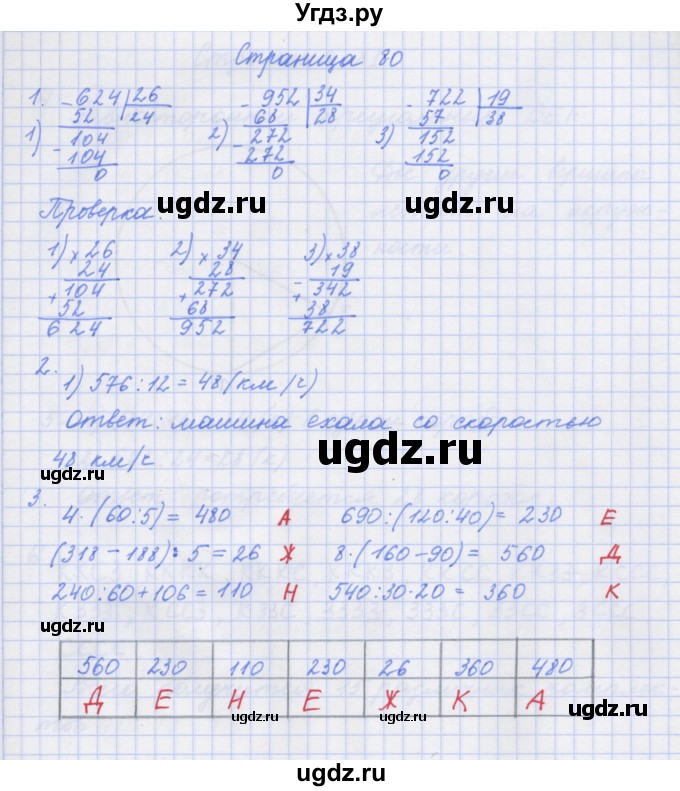 Угдз.ру
Страница 80
1.
1) -624 |26
52 |24
-104
104
0
2) -952 |34
68 |28
-272
272
0
3) -722 |19
57 |38
152
152
0
ugdz.ru ugdz.ru
Проверка:
1) ×26
24
+104
52
624
2) ×34
28
+272
68
952
3) ×38
19
+342
38
722
ugdz.ru ugdz.ru
2.
1) 576:12=48(км/ч)
Ответ: машина ехала со скоростью
48 км/ч
ugdz.ru ugdz.ru
3.
4·(60:5)= 480 А 690:(120:40)= 230 Е
(318-188):5=26 Ж 8·(160-90)= 560 Д
240:60+106=110 Н 540:30·20= 360 К
ugdz.ru ugdz.ru
560 230 110 230 26 360 480
Д Е Н Е Ж К А
ugdz.ru ugdz.ru
ugdz.ru